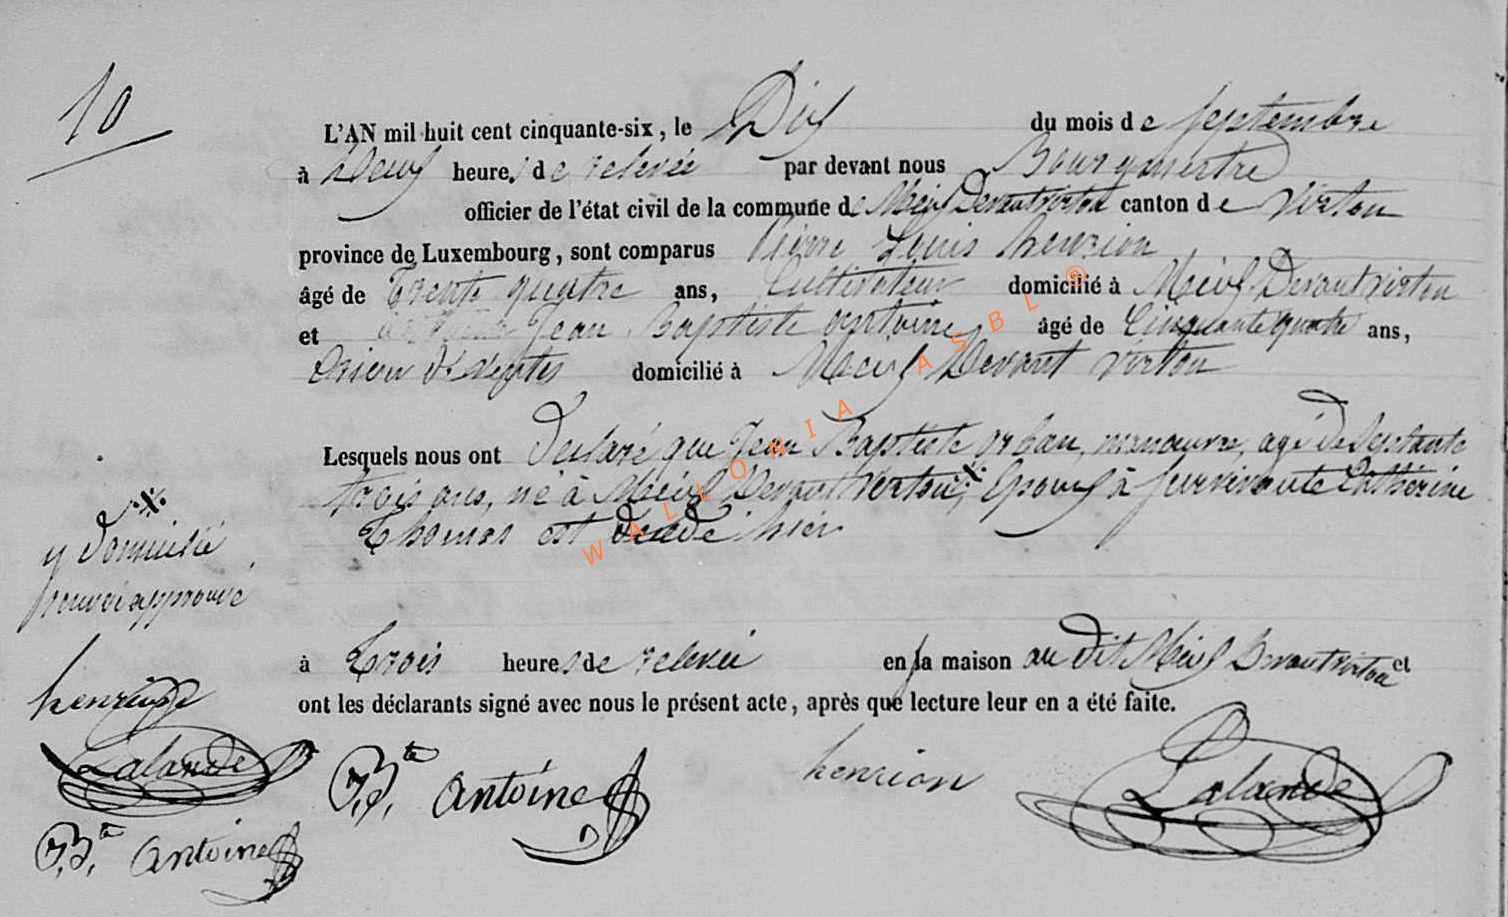 10
L'AN mil huit cent cinquante-six, le Dix du mois de septembre
à Deux heures de relevée par devant nous Bourgmestre
officier de l'état civil de la commune de Meix Devant virton canton de Virton
province de Luxembourg, sont comparus Pierre Louis henrion
âgé de Trente quatre ans, Cultivateur domicilié à Meix Devant virton
et Jean Baptiste antoine âgé de Cinquante quatre ans,
domicilié à Meix Devant virton
Lesquels nous ont declaré que Jean Baptiste orban, manœuvre, agé de septante
trois ans, né à Meix Devant Virton, Epoux à survivante Catherine
Thomas est décédé hier
y domicilié
renvoi approuvé
à Trois heures de relevée en sa maison au dit Meix Devant virton et
ont les déclarants signé avec nous le présent acte, après que lecture leur en a été faite.
henrion
Lalande
J.B.te antoine
J.B.te antoine henrion Lalande
WALLONIA ASBL ®